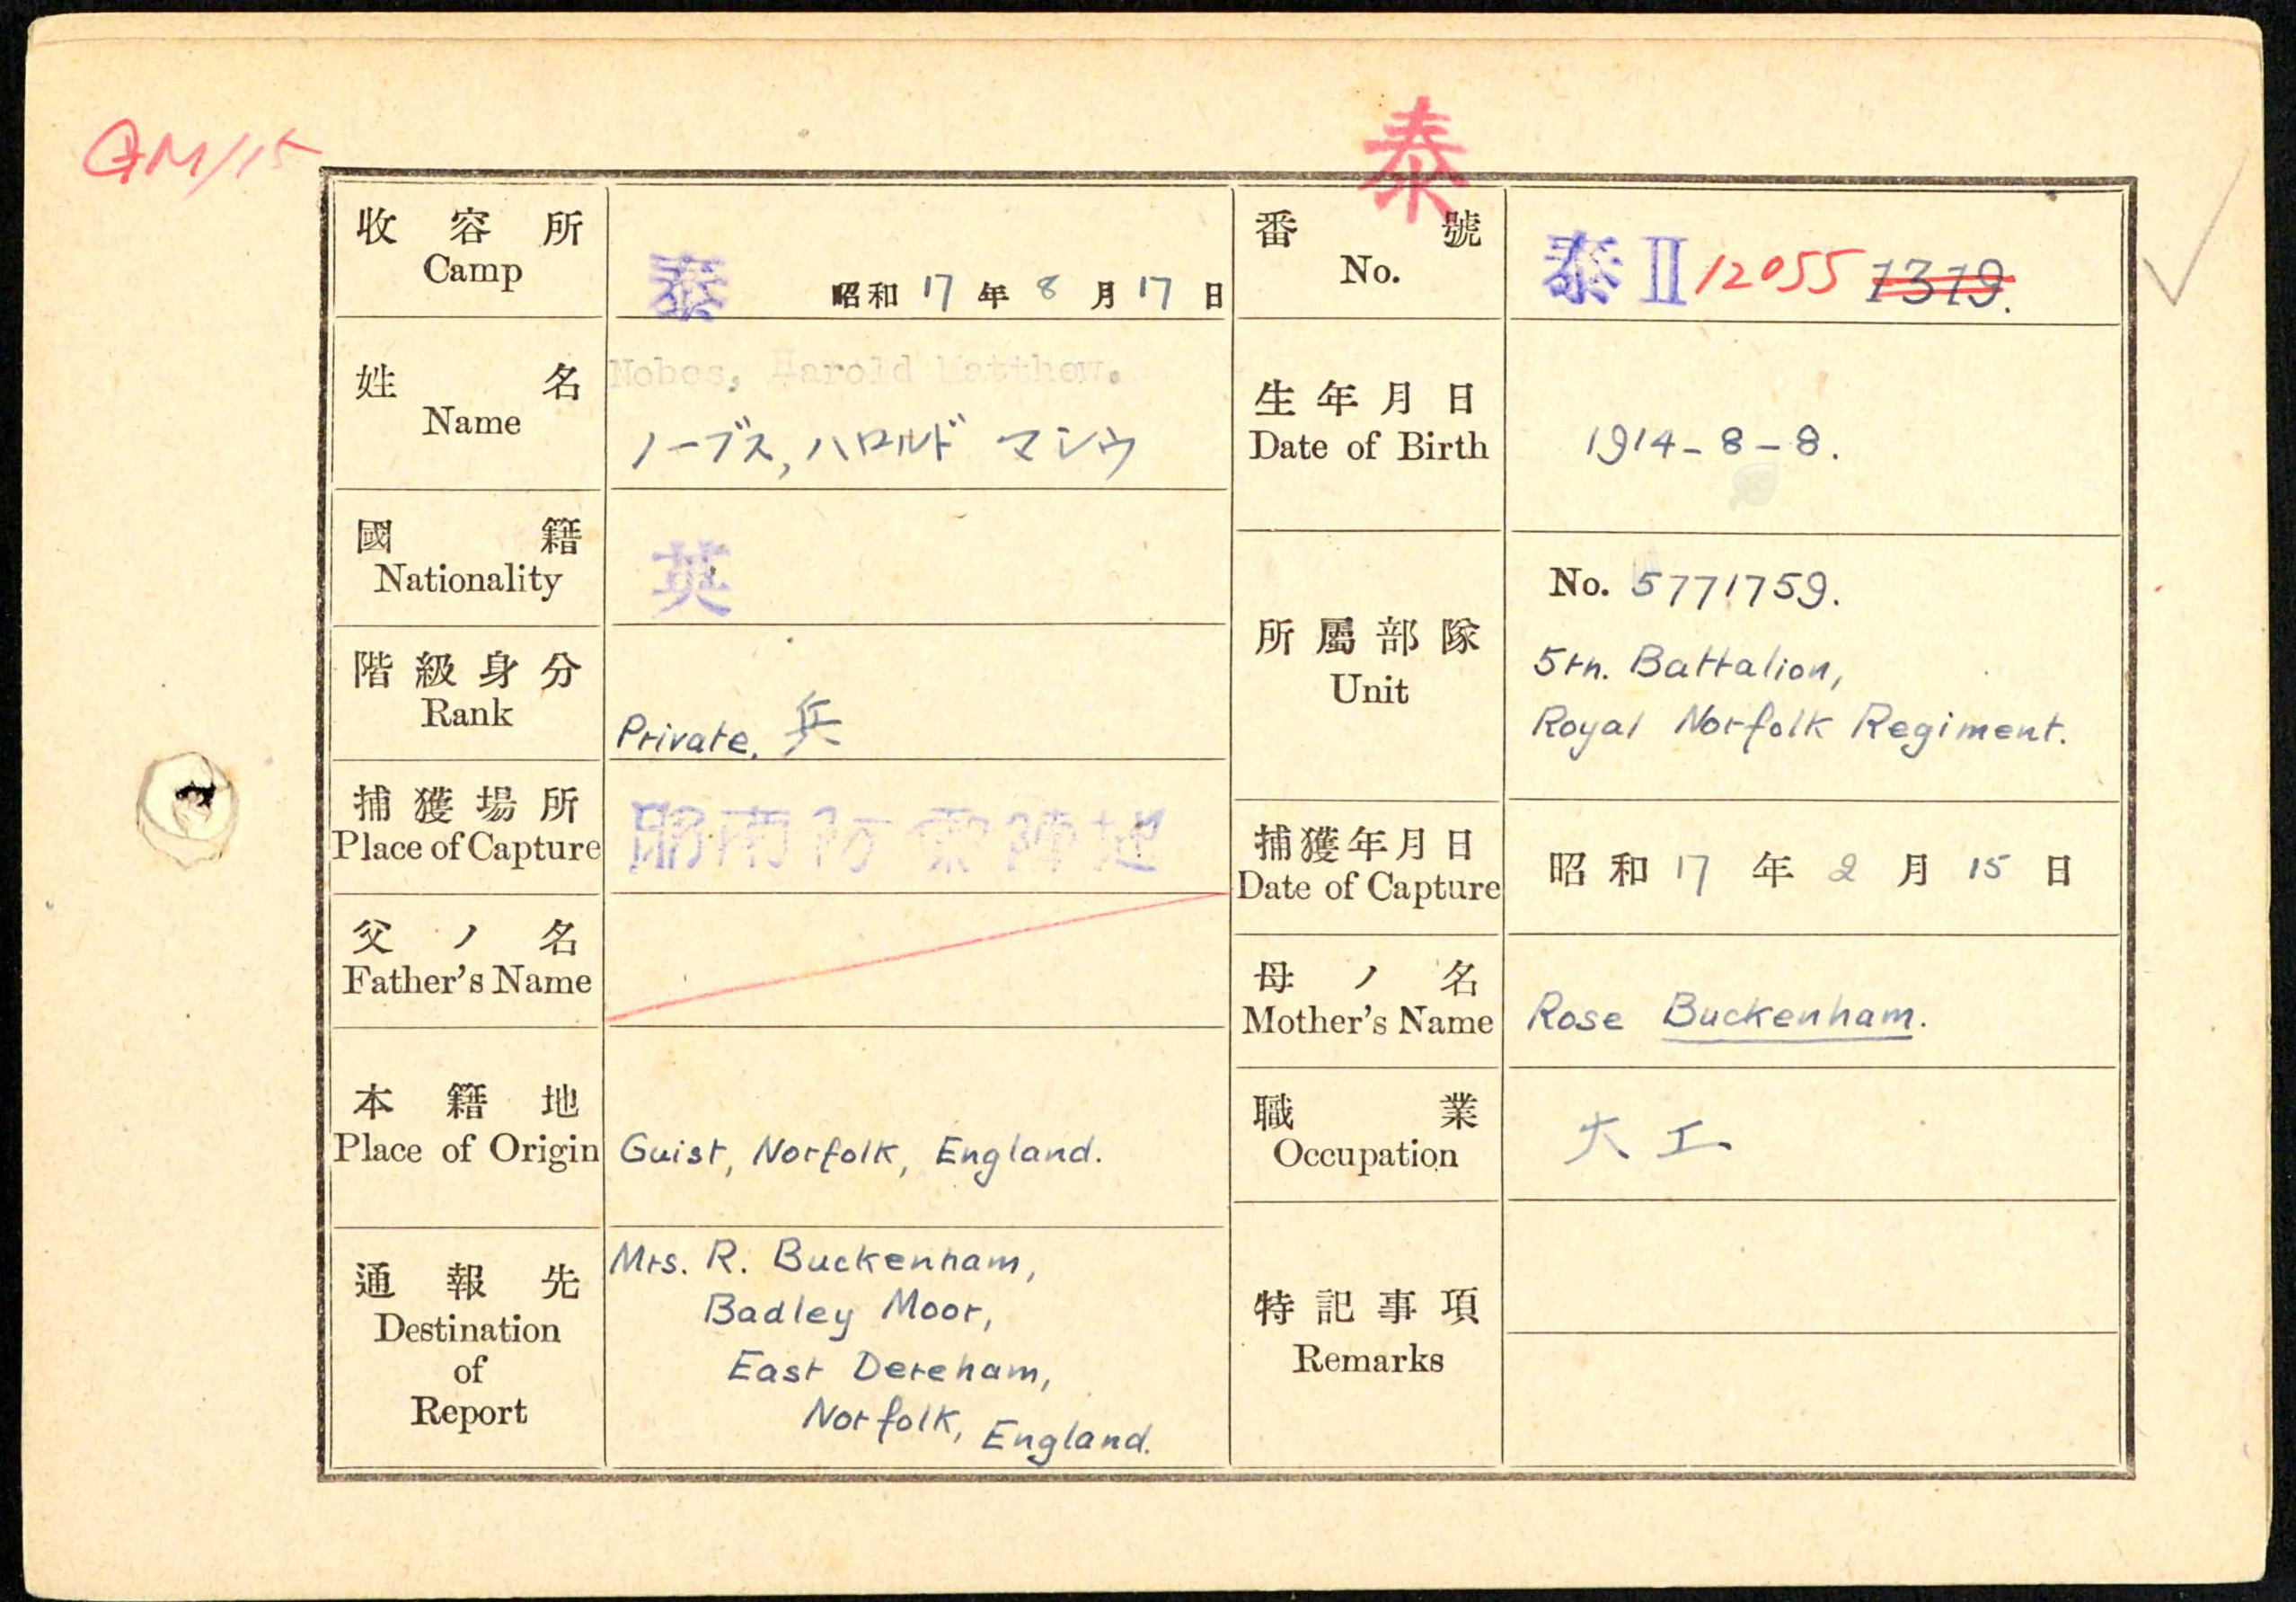 泰
GM/15
收容所
Camp
泰 昭和17年8月17日
番號
No.
泰 II 12055 1319.
姓名
Name
Nobes, Harold Matthew.
ノーブス, ハロルド マシウ
生年月日
Date of Birth
1914-8-8.
國籍
Nationality
英
階級身分
Rank
Private. 兵
所屬部隊
Unit
No. 5771759.
5th. Battalion,
Royal Norfolk Regiment.
捕獲場所
Place of Capture
昭南
捕獲年月日
Date of Capture
昭和17年2月15日
父ノ名
Father's Name
母ノ名
Mother's Name
Rose Buckenham.
本籍地
Place of Origin
Guist, Norfolk, England.
職業
Occupation
大工
通報先
Destination
of
Report
Mrs. R. Buckenham,
Badley Moor,
East Dereham,
Norfolk, England.
特記事項
Remarks